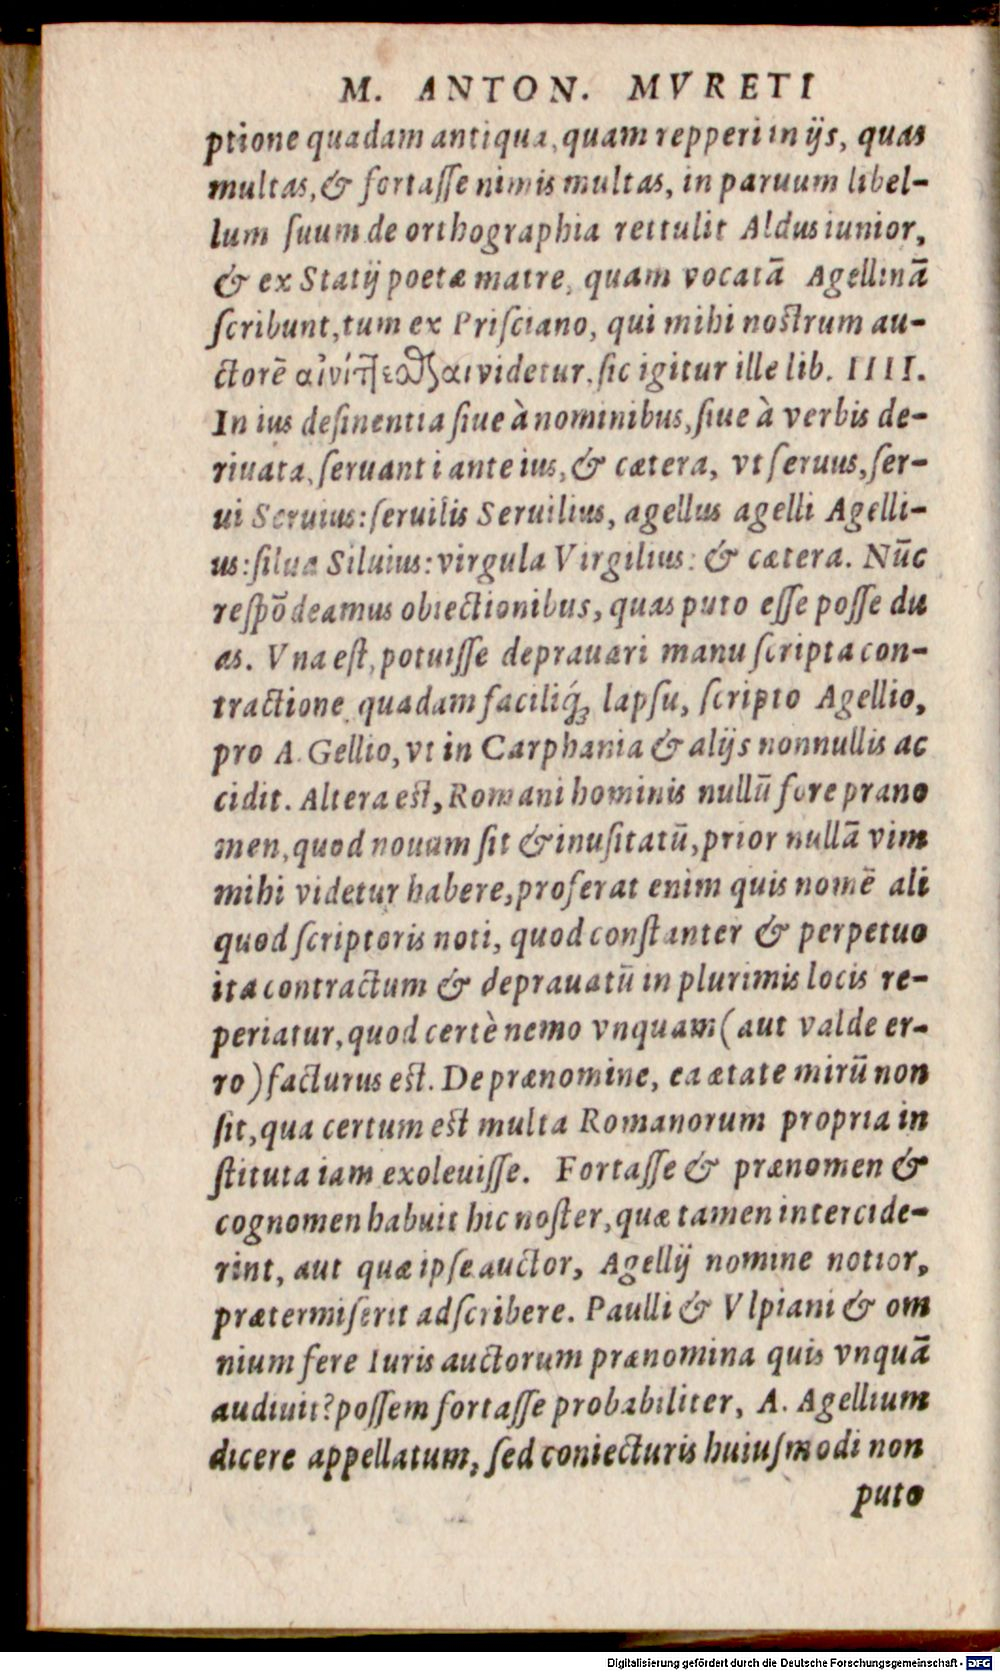 M. ANTON. MVRETI
ptione quadam antiqua, quam repperi in ijs, quas
multas, & fortaſſe nimis multas, in paruum libel-
lum ſuum de orthographia rettulit Aldus iunior,
& ex Statij poetæ matre, quam vocatā Agellinā
ſcribunt, tum ex Priſciano, qui mihi nostrum au-
ctorē αἰνίττεσθαι videtur. ſic igitur ille lib. IIII.
In ius deſinentia ſiue à nominibus, ſiue à verbis de-
riuata, ſeruant i ante ius, & cætera, vt ſeruus, ſer-
ui Seruius: ſeruilis Seruilius, agellus agelli Agelli-
us: ſilua Siluius: virgula Virgilius: & cætera. Nūc
reſpōdeamus obiectionibus, quas puto eſſe poſſe du
as. Vna eſt, potuiſſe deprauari manu ſcripta con-
tractione quadam faciliq́; lapſu, ſcripto Agellio,
pro A. Gellio, vt in Carphania & alijs nonnullis ac
cidit. Altera est, Romani hominis nullū fore præno
men, quod nouum ſit & inuſitatū, prior nullā vim
mihi videtur habere, proferat enim quis nomē ali
quod ſcriptoris noti, quod conſtanter & perpetuo
ita contractum & deprauatū in plurimis locis re-
periatur, quod certè nemo vnquam (aut valde er-
ro) facturus est. De prænomine, ea ætate mirū non
ſit, qua certum est multa Romanorum propria in
ſtituta iam exoleuiſſe. Fortaſſe & prænomen &
cognomen habuit hic noſter, quæ tamen intercide-
rint, aut quæ ipſe auctor, Agellij nomine notior,
prætermiſerit adſcribere. Paulli & Vlpiani & om
nium fere Iuris auctorum prænomina quis vnquā
audiuit? poſſem fortaſſe probabiliter, A. Agellium
dicere appellatum, ſed coniecturis huiuſmodi non
puto
Digitalisierung gefördert durch die Deutsche Forschungsgemeinschaft - DFG